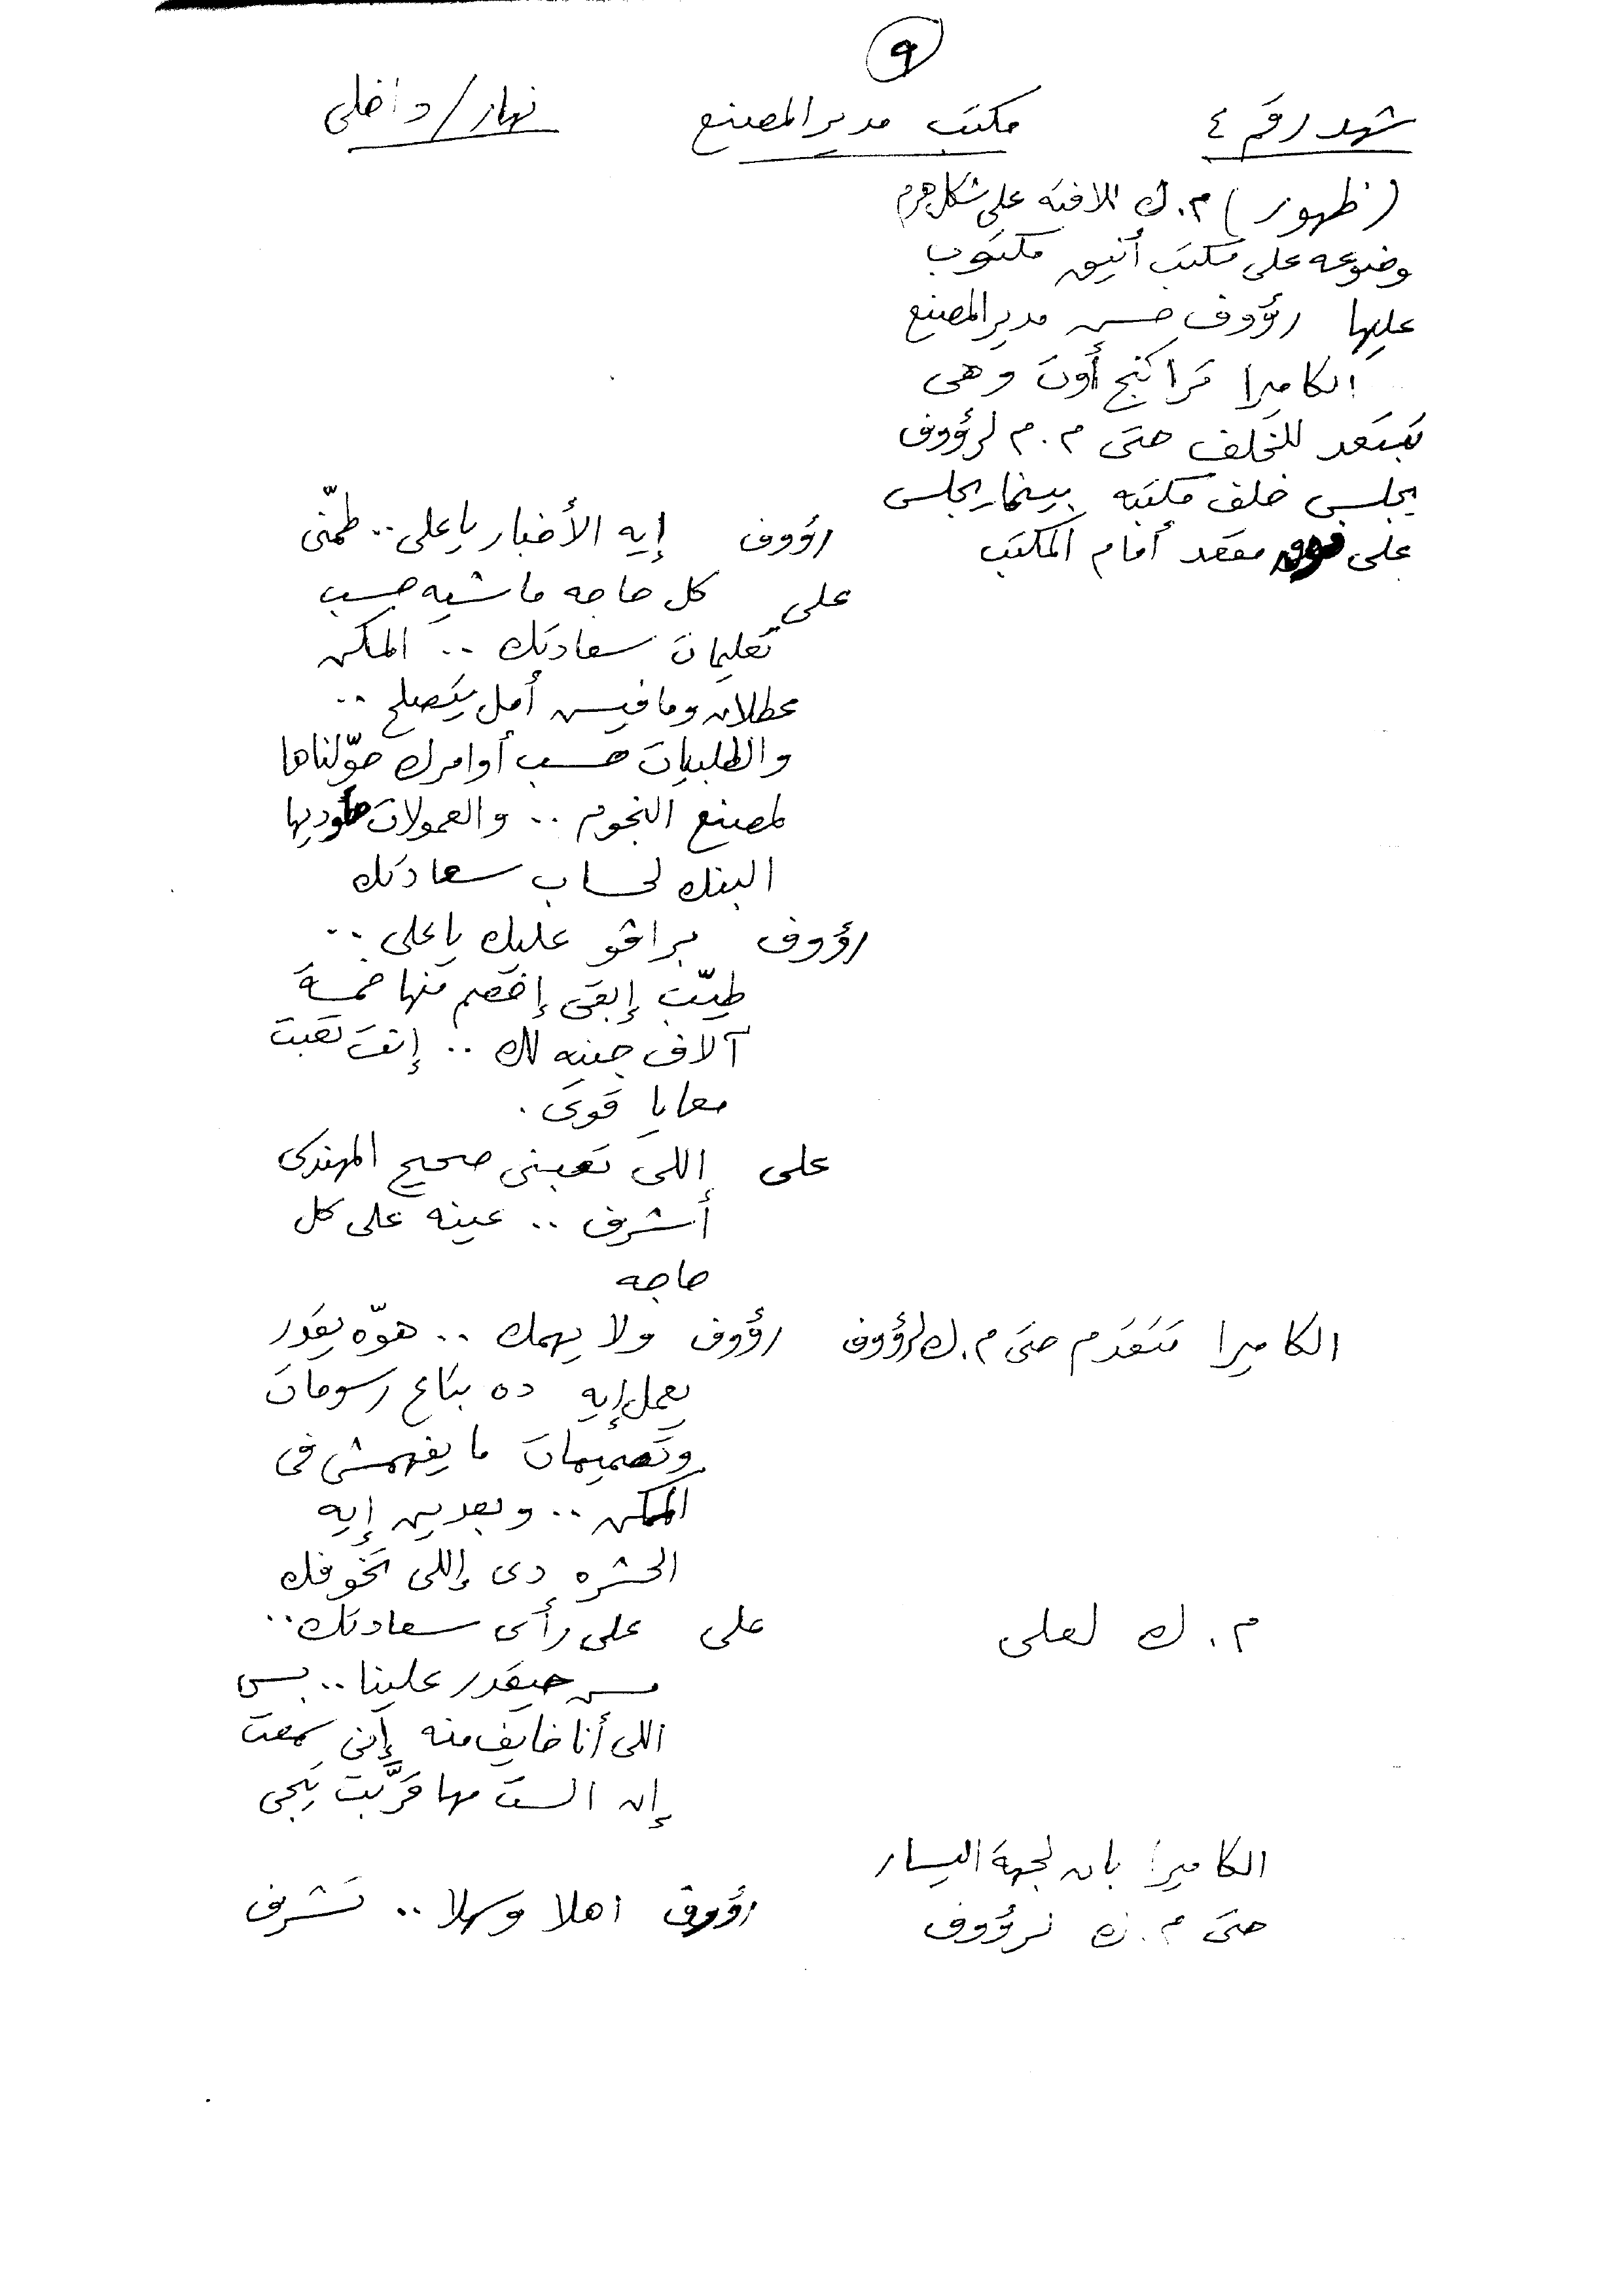 ٩
شهد رقم ٤ مكتب مدير المصنع نهار/داخلى
(ظهور) م. ك للافته على شكل هرم
وضوعه على مكتب أنيق مكتوب
عليها رؤوف حسن مدير المصنع
الكاميرا تراكنج أوت وهى
تبتعد للخلف حتى م. م لرؤوف
يجلس خلف مكتبه بينما يجلس
على مقعد أمام المكتب
رؤوف إيه الأخبار يا على .. طمّنى
على كل حاجه ماشيه حسب
تعليمات سعادتك .. المكن
عطلان ومافيس أمل يتصلح ..
والطلبيات حسب أوامرك حوّلناها
لمصنع النجوم .. والعمولات حاوديها
البنك لحساب سعادتك
رؤوف براڤو عليك يا على ..
طيّب إبقى إخصم منها خمسة
آلاف جنيه لك .. إنت تعبت
معايا قوى .
على إللى تعبنى صحيح المهندس
أشرف .. عينه على كل
حاجه
الكاميرا تتقدم حتى م. ك لرؤوف رؤوف ولا يهمك .. هوّه يقدر
يعمل إيه ده بتاع رسومات
وتصميمات ما يفهمش فى
المكن .. وبعدين إيه
الحشره دى إللى تخوفك
م. ك لعلى على على رأى سعادتك ..
مس حيقدر علينا .. بس
اللى أنا خايف منه إنى سمعت
إن الست مها قرّبت تيجى
الكاميرا بان لجهة اليسار
حتى م. ك لرؤوف رؤوف اهلا وسهلا .. تشرف